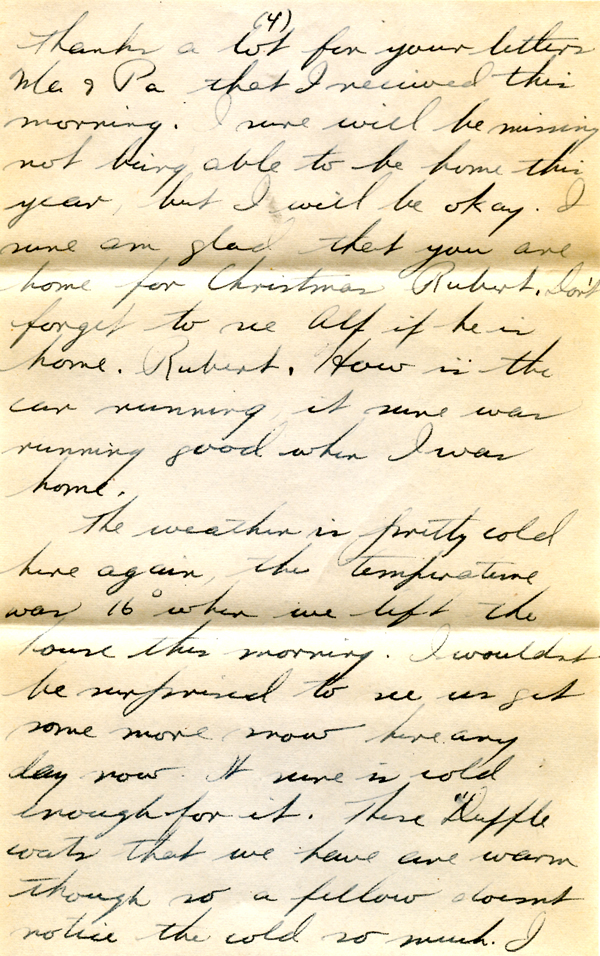 (4)
Thanks a lot for your letters
Ma & Pa that I received this
morning. I sure will be missing
not being able to be home this
year, but I will be okay. I
sure am glad that you are
home for Christmas Rubert. Don't
forget to see Alf if he is
home. Rubert. How is the
car running, it sure was
running good when I was
home.
The weather is pretty cold
here again, the temperature
was 16° when we left the
house this morning. I wouldnt
be surprised to see us get
some more snow here any
day now. It sure is cold
enough for it. These "Duffle
coats that we have are warm
though so a fellow doesnt
notice the cold so much. I